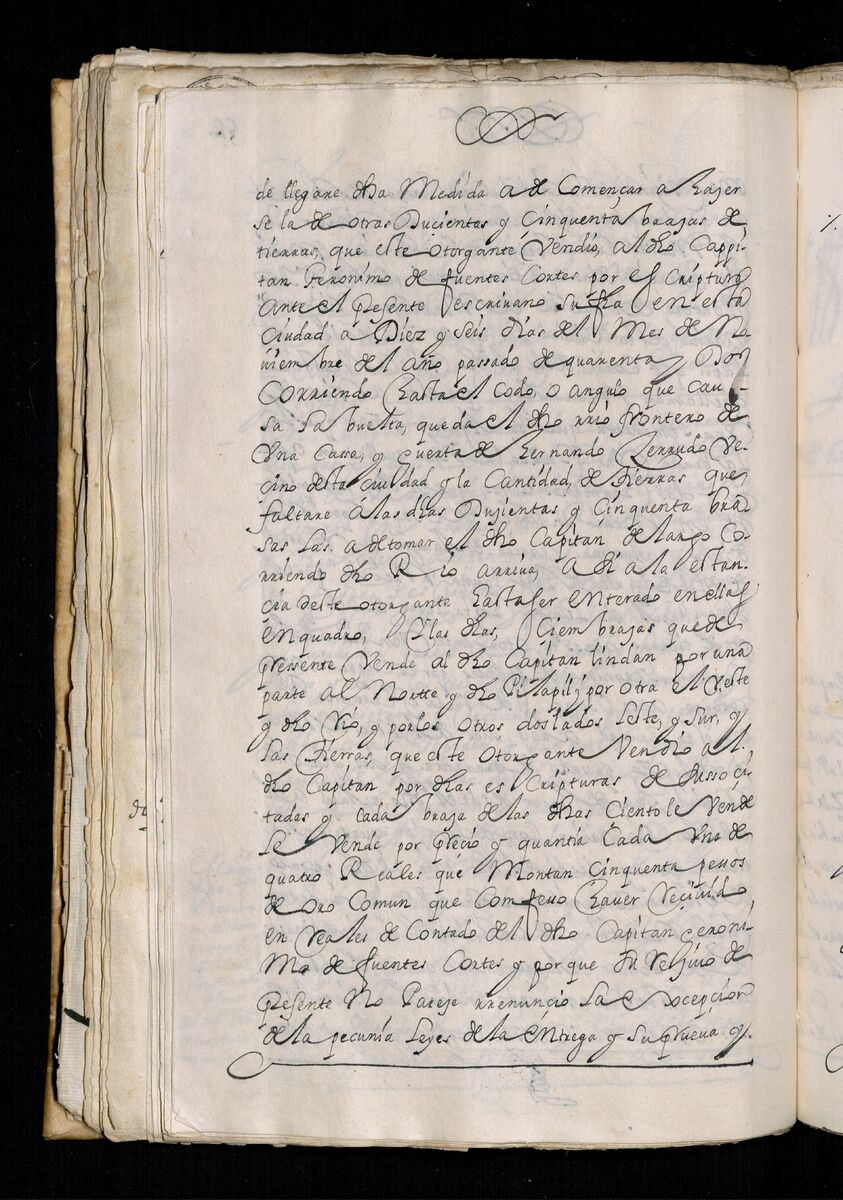 de llegare dha Medida a de Començar a haçer
se la de otras Ducientas y Cinquenta braças de
tierras, que este otorgante Vendio, al dho Cappi-
tan Geronimo de fuentes Cortes por escriptura
Ante el presente escriuano su fha en esta
Ciudad a Diez y seis dias del Mes de No-
uiembre del año passado de quarenta y Dos
Corriendo hasta el codo, o angulo que cau-
sa la buelta, que da el dho rrio frontero de
Vna Cassa, y guerta de hernando Zerrudo Ve-
cino desta ciudad y la Cantidad, de tierras que
faltare a las dhas Duçientas y Cinquenta bra-
sas las a de tomar el dho Capitan de largo Co-
rriendo dho Rio arriua, açia la estan-
cia deste otorgante hasta ser enterado en ellas
en quadro, Y las dhas, Cien braças que de
pressente Vende al dho Capitan lindan por una
parte al Norte y dho Pilapil, por otra el Veste
y dho rio, y por los otros dos lados leste, y sur, y
las tierras, que este otorgante Vendio al
dho Capitan por dhas escripturas de susso ci-
tadas y cada braça de las dhas Ciento le Vende
se Vende por precio y quantia Cada Vna de
quatro Reales que Montan Cinquenta pessos
de oro Comun que Comfesso hauer reciuido
en reales de Contado del dho Capitan Geroni-
mo de fuentes Cortes y por que su reçiuo de
presente No Pareçe rrenuncio la excepcion
de la pecunia leyes de la entrega y su prueua y